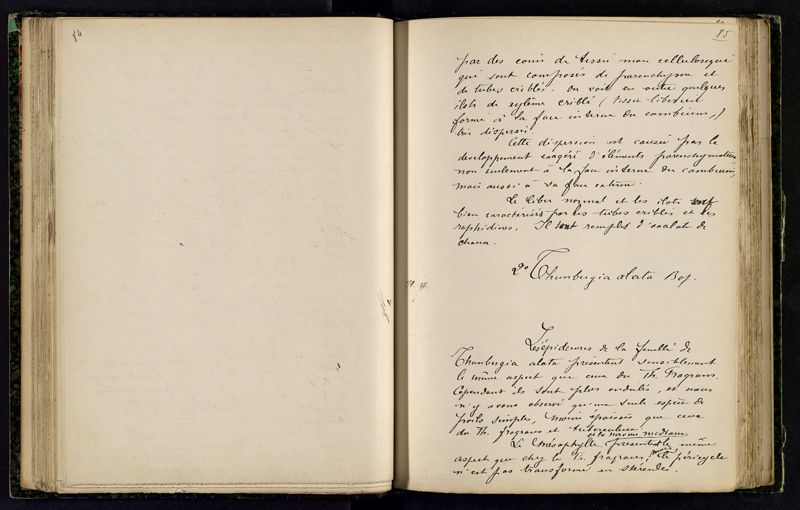 84
85
par des coins de tissu mou cellulosique
qui sont composés de parenchyme et
de tubes criblés. On voit en outre quelques
ilots de xylème criblé (tissu libérien
formé à la face interne du cambium,)
très dispersé.
Cette dispersion est causée par le
developpement exagéré d'éléments parenchymateux
non seulement à la face interne du cambium,
mais aussi à sa face externe.
Le liber normal et les ilots sont
bien caractérisés par les tubes criblés et les
raphidines. Il sont remplis d'oxalate de
chaux.
2o Thunbergia alata Boj.
Les épidermes de la feuille de
Thunbergia alata présentent sensiblement
le même aspect que ceux du Th. fragrans.
Cependant ils sont plus ondulés, et nous
n'y avons observé qu'une seule espèce de
poils simples, moins épaissis que ceux
du Th. fragrans et
et la nervure médiane
Le Mésophylle présentent le même
aspect que chez le Th. fragrans, le péricycle
n'est pas transformé en stéréides.